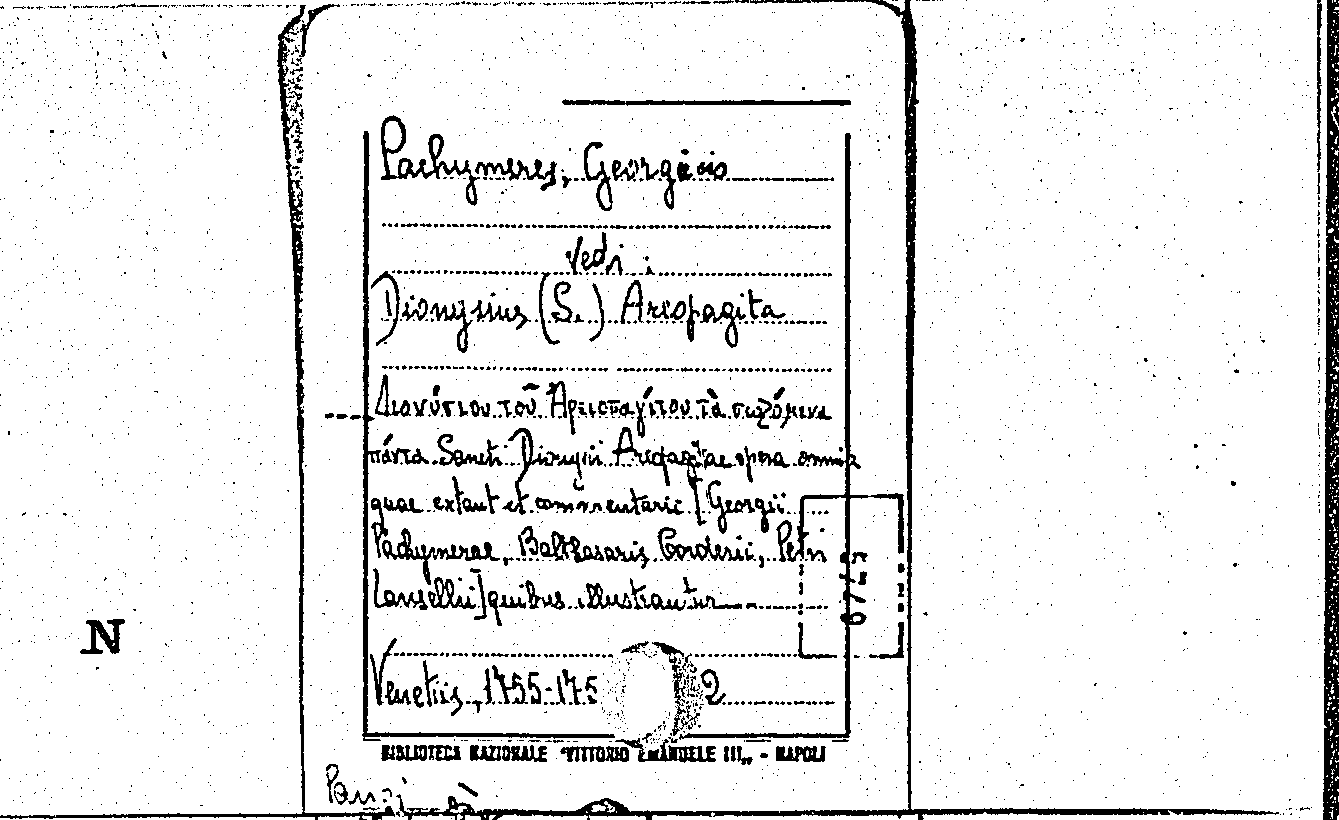 Pachymeres, Georgius
Vedi :
Dionysius (S.) Areopagita
Διονύσιου τοῦ Ἀρειοπαγίτου τὰ σωζόμενα
πάντα Sancti Dionysii Areopagitae opera omnia
quae extant et commentarii [Georgii
Pachymerae, Balthasaris Corderii, Petri
Lansellii] quibus illustrantur
6725
N
Venetiis, 1755-175 2
BIBLIOTECA NAZIONALE "VITTORIO EMANUELE III„ - NAPOLI